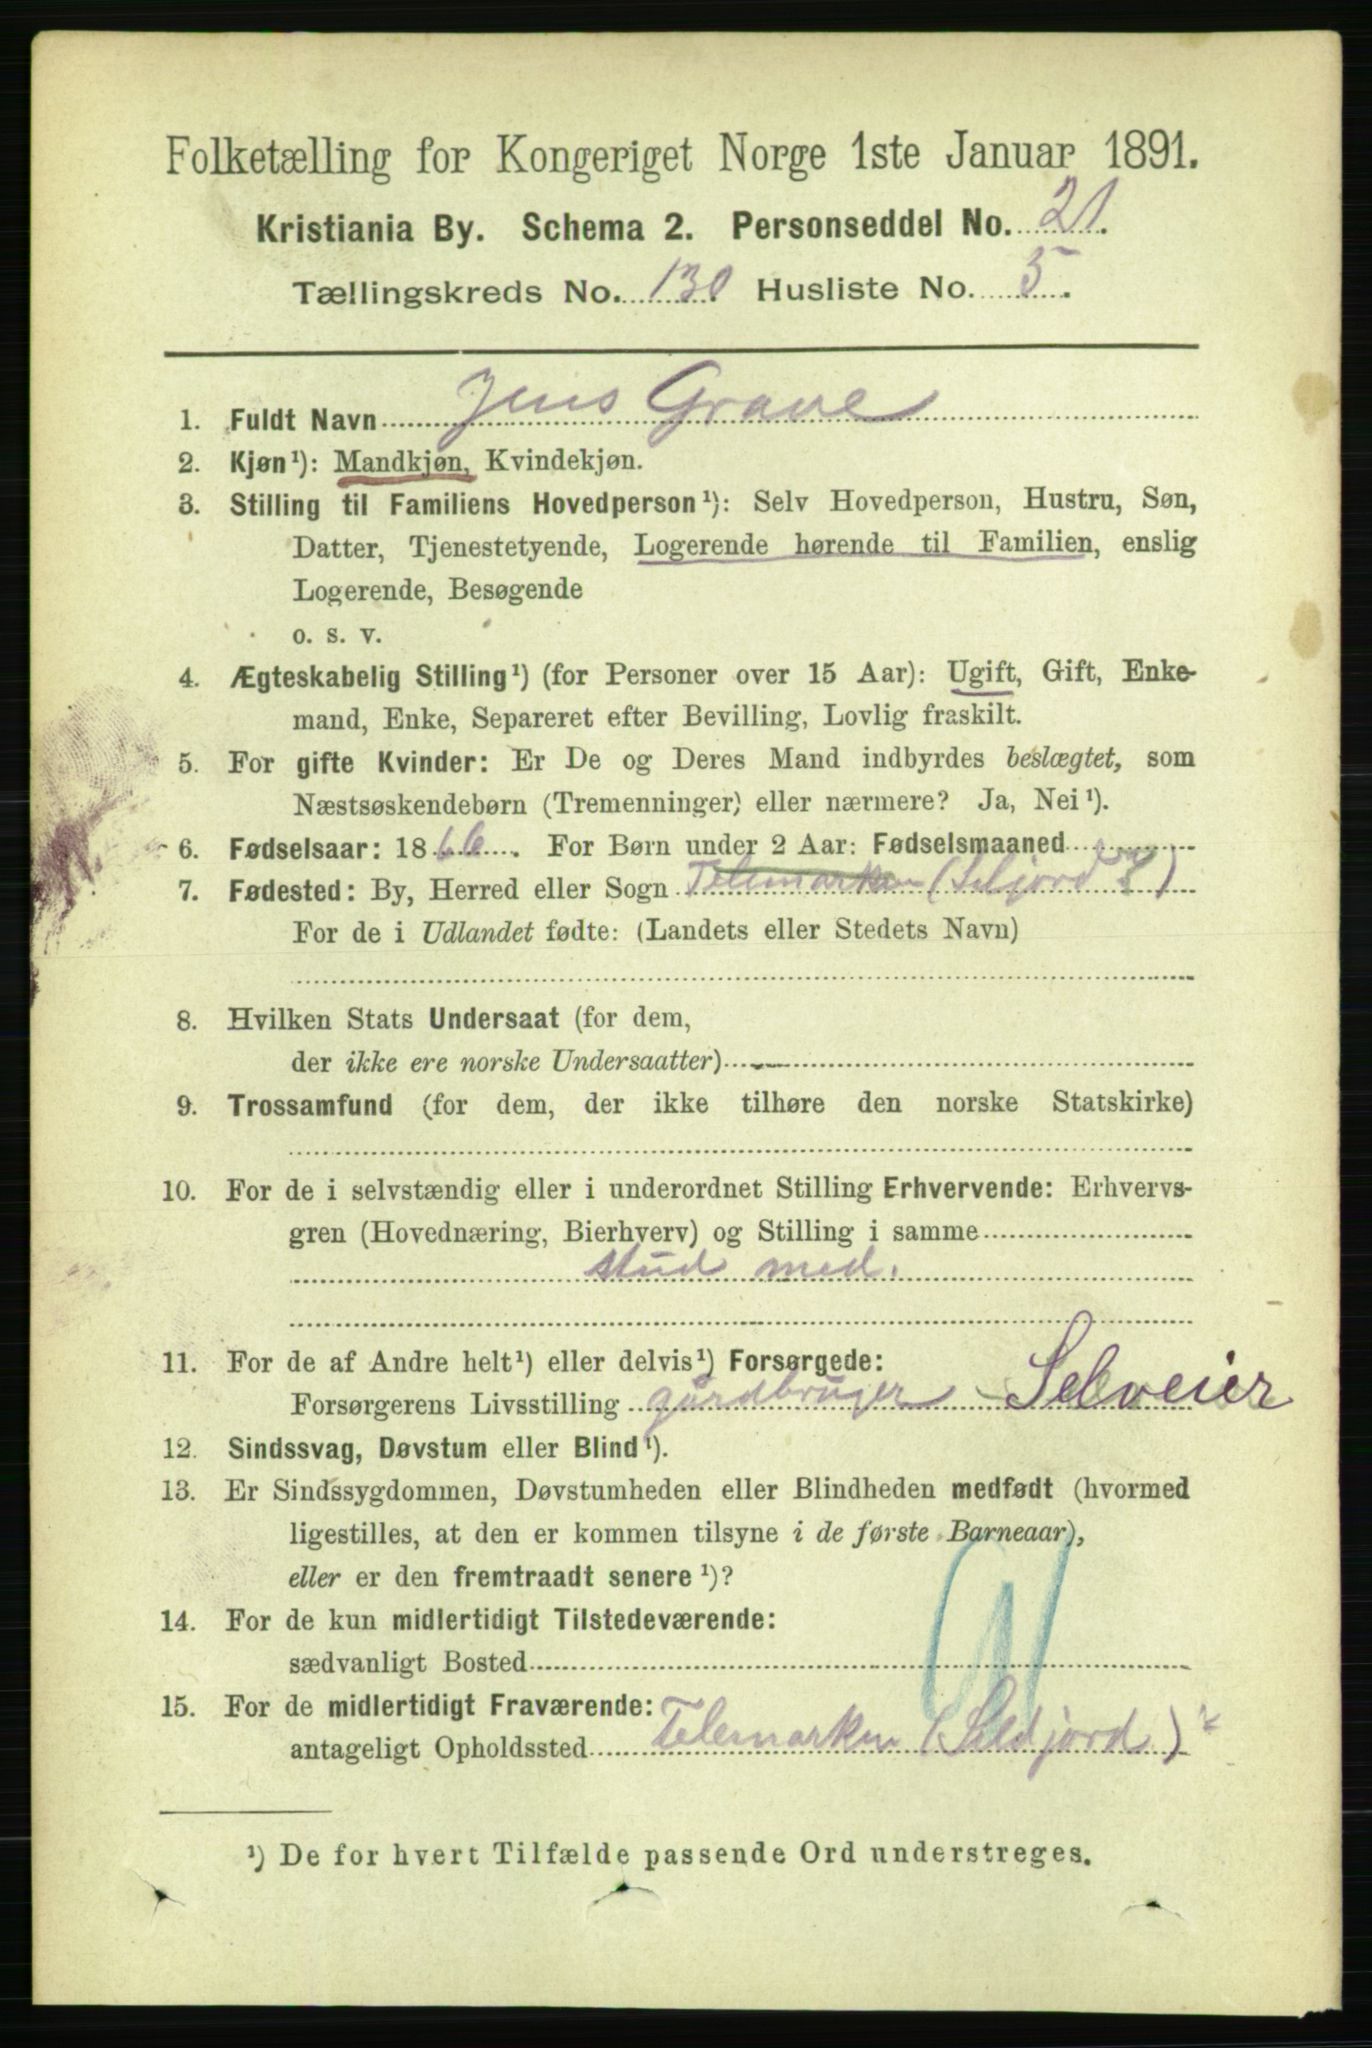 Folketælling for Kongeriget Norge 1ste Januar 1891.
Kristiania By. Schema 2. Personseddel No. 21.
Tællingskreds No. 130 Husliste No. 5.
1. Fuldt Navn Jens Grave
2. Kjøn¹): Mandkjøn, Kvindekjøn.
3. Stilling til Familiens Hovedperson¹): Selv Hovedperson, Hustru, Søn,
Datter, Tjenestetyende, Logerende hørende til Familien, enslig
Logerende, Besøgende
o. s. v.
4. Ægteskabelig Stilling¹) (for Personer over 15 Aar): Ugift, Gift, Enke-
mand, Enke, Separeret efter Bevilling, Lovlig fraskilt.
5. For gifte Kvinder: Er De og Deres Mand indbyrdes beslægtet, som
Næstsøskendebørn (Tremenninger) eller nærmere? Ja, Nei¹).
6. Fødselsaar: 1866. For Børn under 2 Aar: Fødselsmaaned
7. Fødested: By, Herred eller Sogn Telemarken (Seljord)
For de i Udlandet fødte: (Landets eller Stedets Navn)
8. Hvilken Stats Undersaat (for dem,
der ikke ere norske Undersaatter)
9. Trossamfund (for dem, der ikke tilhøre den norske Statskirke)
10. For de i selvstændig eller i underordnet Stilling Erhvervende: Erhvervs-
gren (Hovednæring, Bierhverv) og Stilling i samme
stud med.
11. For de af Andre helt¹) eller delvis¹) Forsørgede:
Forsørgerens Livsstilling gårdbruger - Selveier
12. Sindssvag, Døvstum eller Blind¹).
13. Er Sindssygdommen, Døvstumheden eller Blindheden medfødt (hvormed
ligestilles, at den er kommen tilsyne i de første Barneaar),
eller er den fremtraadt senere¹)?
14. For de kun midlertidigt Tilstedeværende:
sædvanligt Bosted
15. For de midlertidigt Fraværende:
antageligt Opholdssted Telemarken (Seldjord)
¹) De for hvert Tilfælde passende Ord understreges.